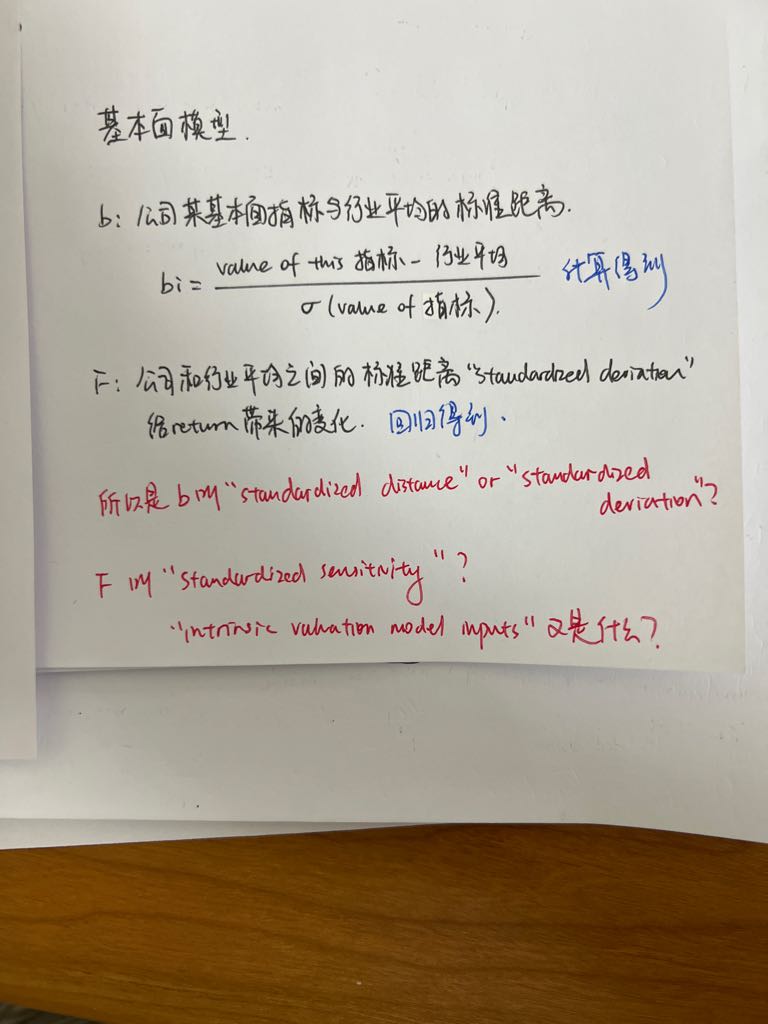 基本面模型.
b: 公司某基本面指标与行业平均的标准距离.
bi = value of this 指标 - 行业平均 / σ (value of 指标). 计算得到
F: 公司和行业平均之间的标准距离 "standardized deviation"
给return带来的变化. 回归得到.
所以是 b 叫 "standardized distance" or "standardized
deviation"?
F 叫 "standardized sensitivity"?
"intrinsic valuation model inputs" 又是什么?